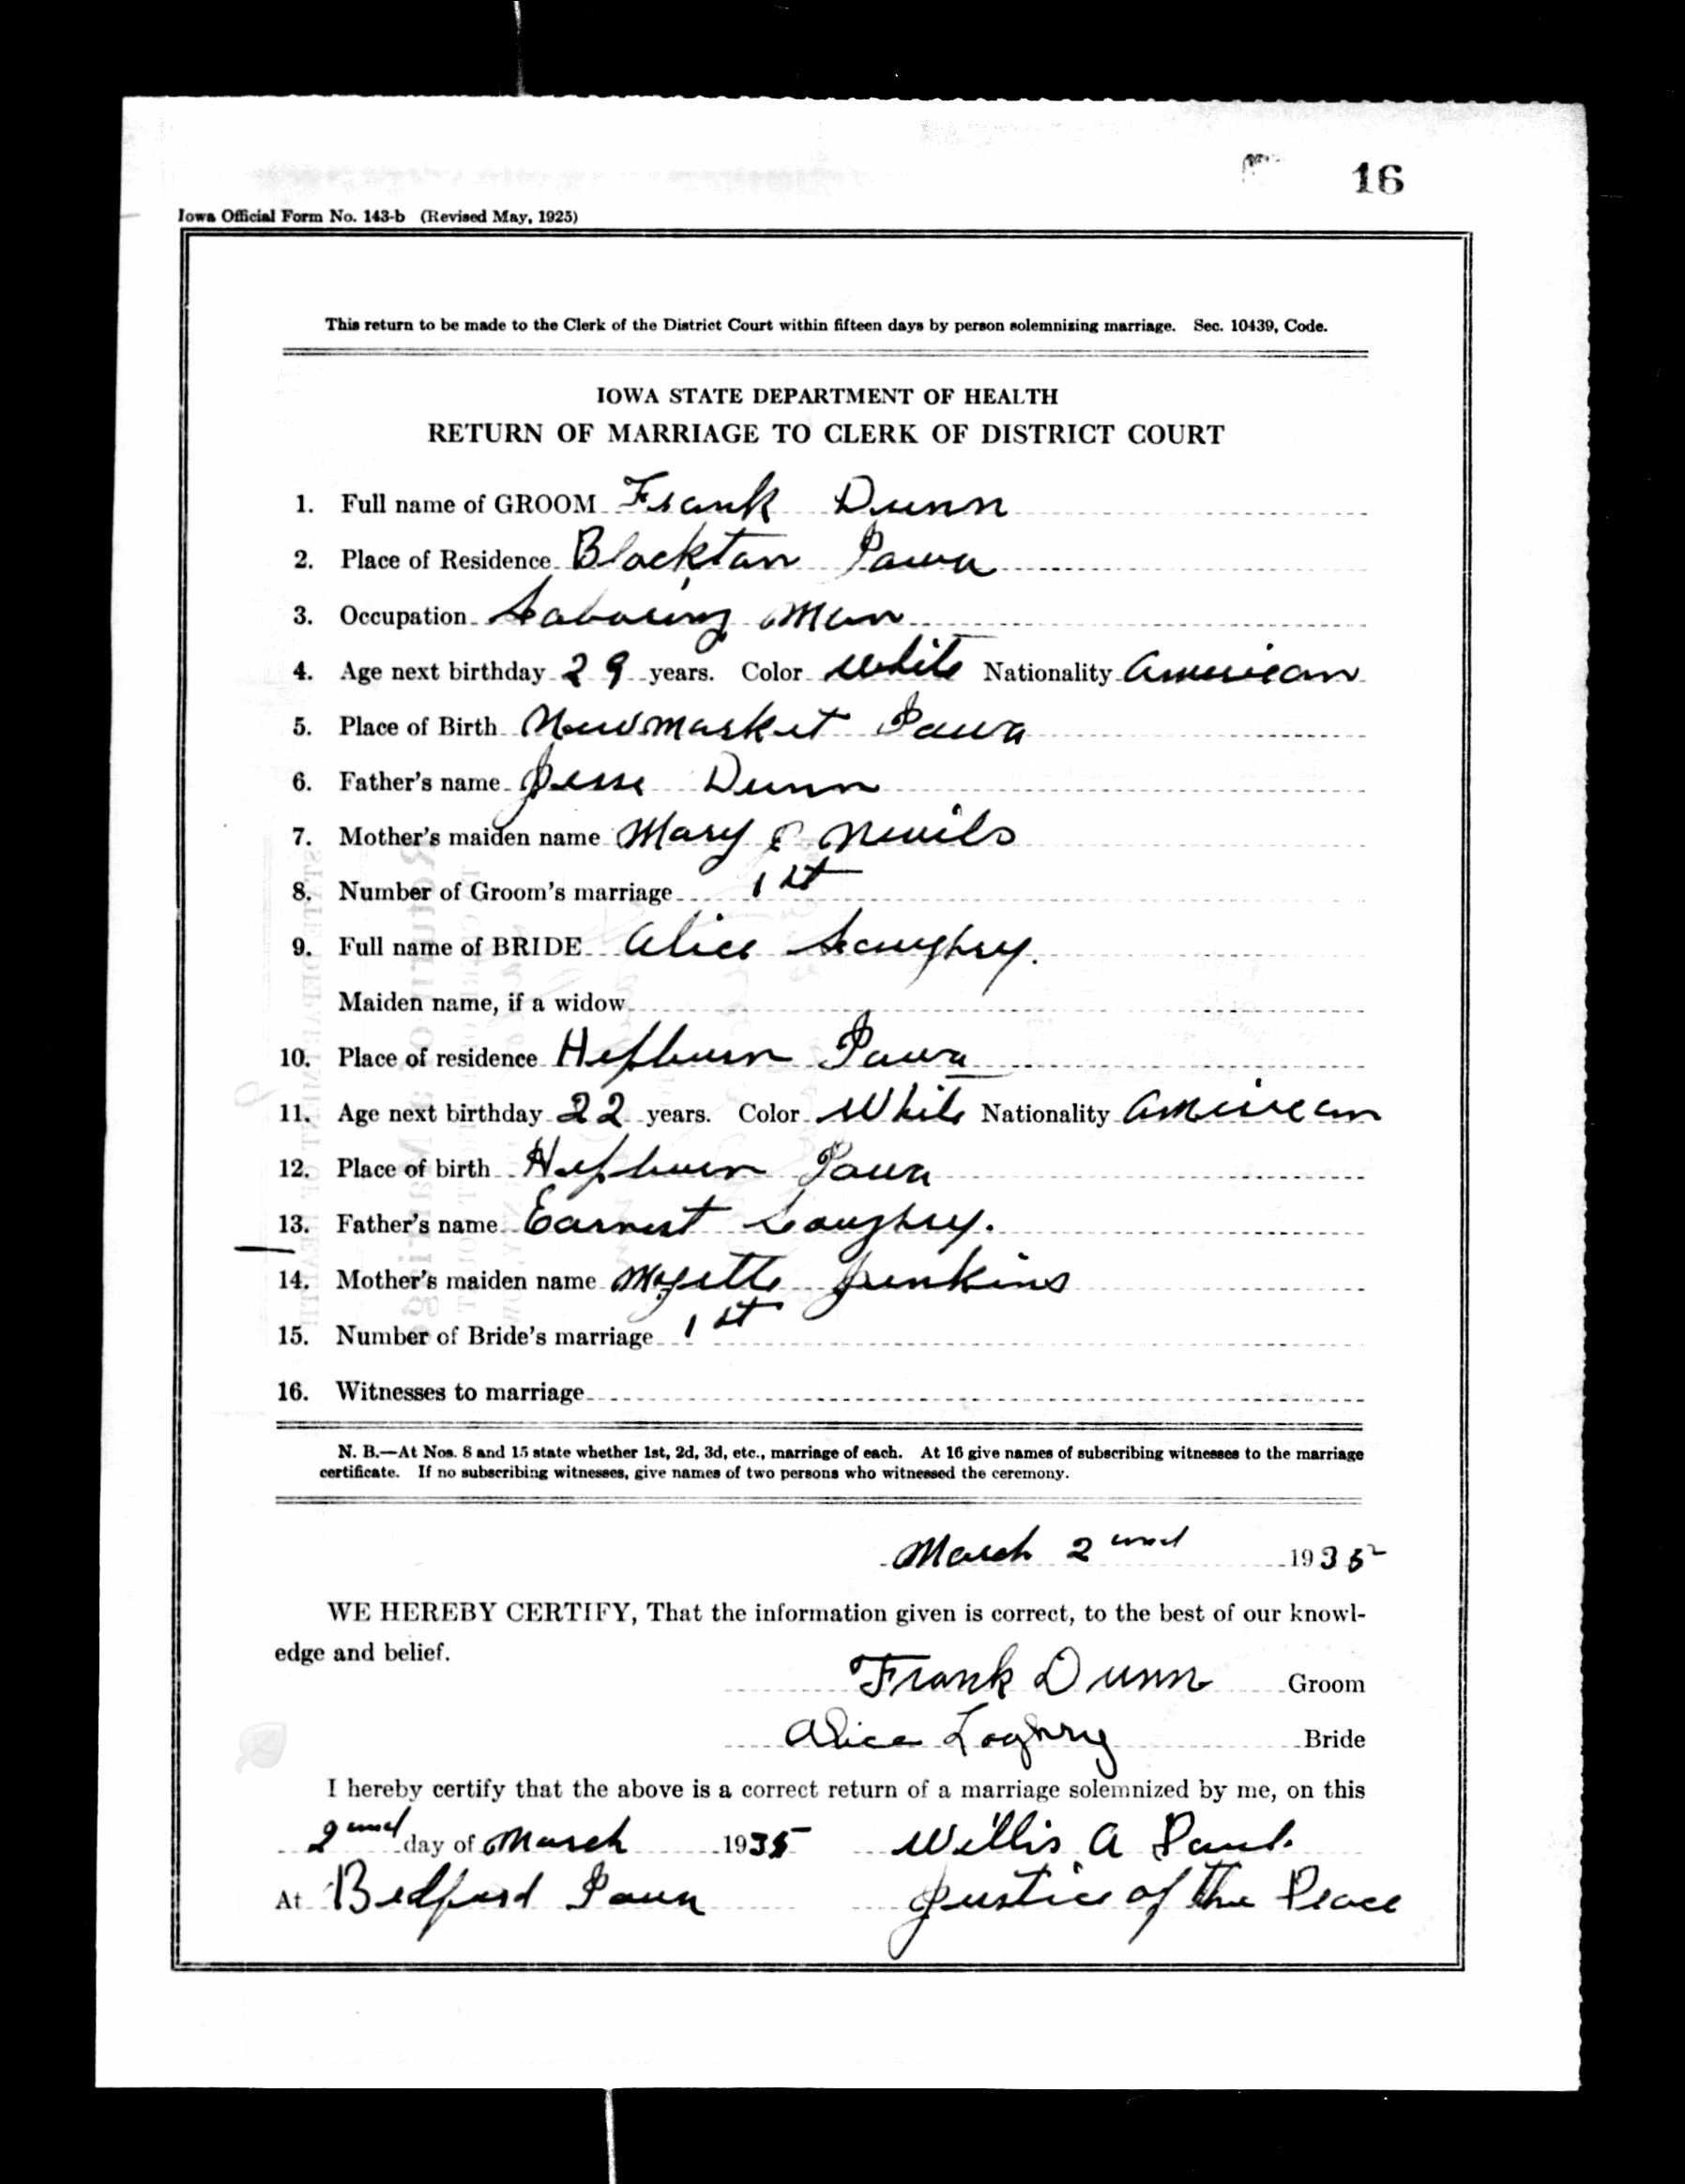 16
Iowa Official Form No. 143-b (Revised May, 1925)
This return to be made to the Clerk of the District Court within fifteen days by person solemnizing marriage. Sec. 10439, Code.
IOWA STATE DEPARTMENT OF HEALTH
RETURN OF MARRIAGE TO CLERK OF DISTRICT COURT
1. Full name of GROOM Frank Dunn
2. Place of Residence Blockton Iowa
3. Occupation Laboring Man
4. Age next birthday 29 years. Color White Nationality American
5. Place of Birth Newmarket Iowa
6. Father's name Jesse Dunn
7. Mother's maiden name Mary E Nevils
8. Number of Groom's marriage 1st
9. Full name of BRIDE Alice Laughry.
Maiden name, if a widow
10. Place of residence Hepburn Iowa
11. Age next birthday 22 years. Color White Nationality American
12. Place of birth Hepburn Iowa
13. Father's name Earnest Loughry.
14. Mother's maiden name Jenkins
15. Number of Bride's marriage 1st
16. Witnesses to marriage
N. B.—At Nos. 8 and 15 state whether 1st, 2d, 3d, etc., marriage of each. At 16 give names of subscribing witnesses to the marriage
certificate. If no subscribing witnesses, give names of two persons who witnessed the ceremony.
March 2und 1935
WE HEREBY CERTIFY, That the information given is correct, to the best of our knowl-
edge and belief.
Frank Dunn Groom
Alice Loghry Bride
I hereby certify that the above is a correct return of a marriage solemnized by me, on this
2und day of March 1935 Willis A Paul.
At Bedford Iowa Justice of the Peace